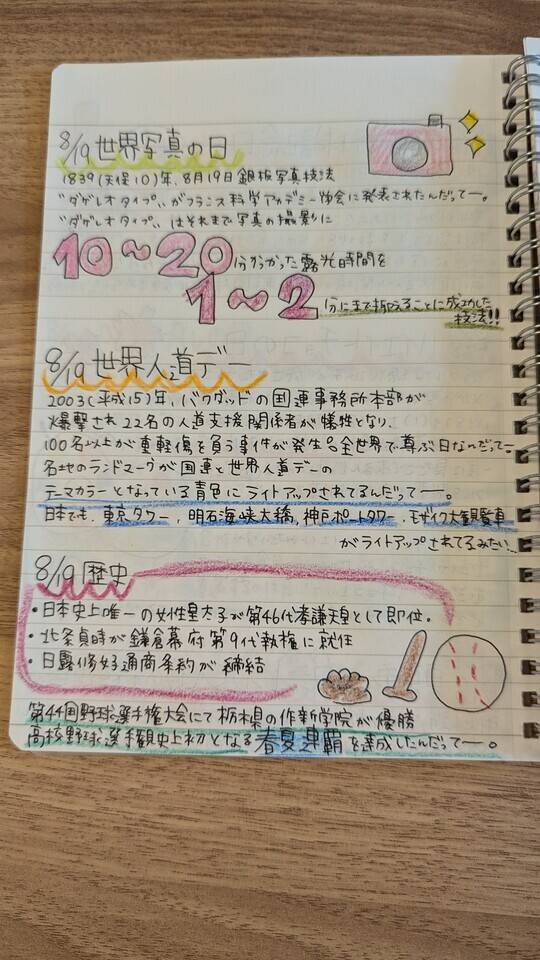 8/19 世界写真の日
1839(天保10)年、8月19日銀板写真技法
"ダゲレオタイプ〟がフランス科学アカデミー協会に発表されたんだってー。
"ダゲレオタイプ〟はそれまで写真の撮影に
10~20分かかった露光時間を
1~2分にまで抑えることに成功した
技法!!
8/19 世界人道デー
2003(平成15)年、バクダッドの国連事務所本部が
爆撃され22名の人道支援関係者が犠牲となり、
100名以上が重軽傷を負う事件が発生。全世界で尊ぶ日なんだってー。
各地のランドマークが国連と世界人道デーの
テーマカラーとなっている青色にライトアップされてるんだってー。
日本でも、東京タワー、明石海峡大橋、神戸ポートタワー、モザイク大観覧車
がライトアップされてるみたい…
8/19 歴史
・日本史上唯一の女性皇太子が第46代孝謙天皇として即位。
・北条貞時が鎌倉幕府第9代執権に就任
・日露修好通商条約が締結
第44回野球選手権大会にて栃木県の作新学院が優勝
高校野球選手権史上初となる春夏連覇を達成したんだってー。